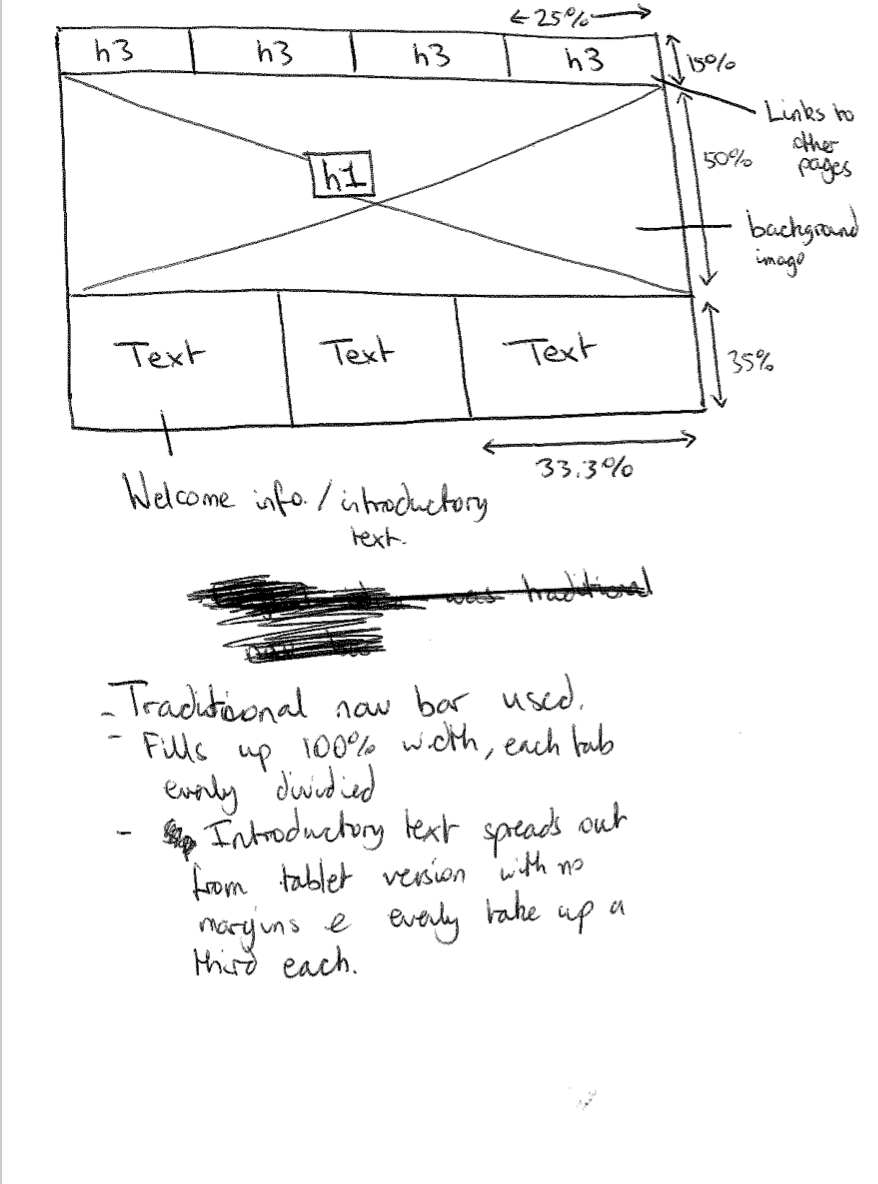 25%
h3 h3 h3 h3
15%
Links to
other
pages
h1
50%
background
image
Text Text Text
35%
33.3%
Welcome info. / introductory
text.
was traditional
- Traditional nav bar used.
- Fills up 100% width, each tab
evenly dividied
- Introductory text spreads out
from tablet version with no
margins & evenly take up a
third each.